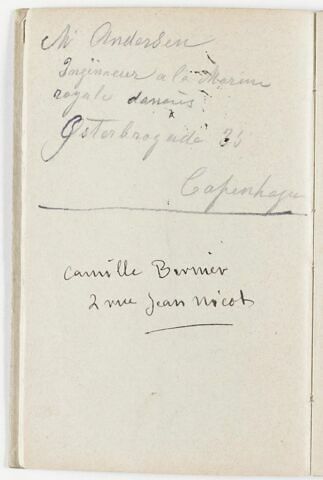 Mr Andersen
Ingénieur a la Marine
royale danois
Österbrogade 36
Copenhague
Camille Bernier
2 rue Jean Nicot